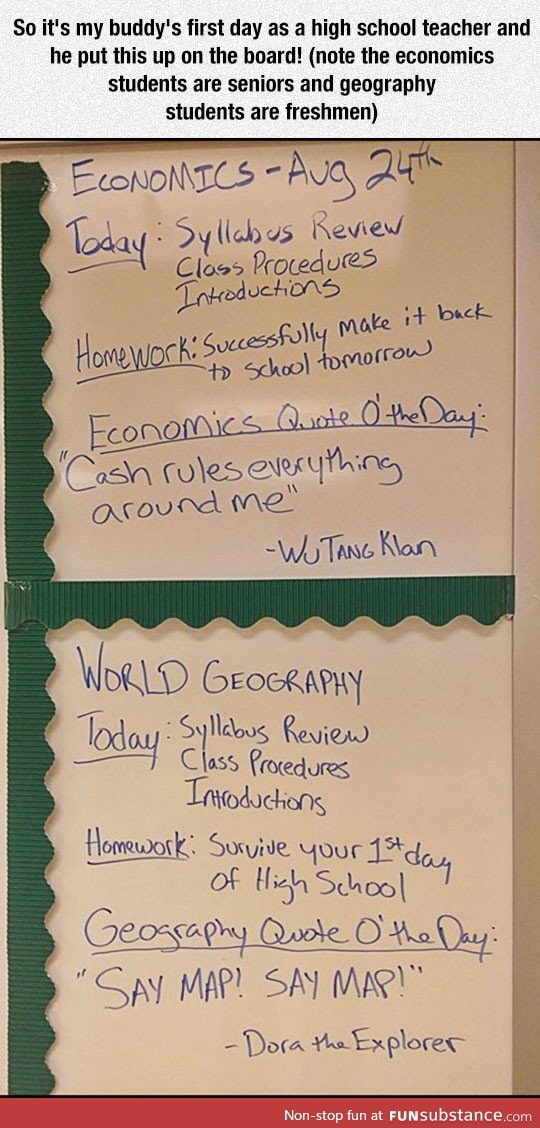 So it's my buddy's first day as a high school teacher and
he put this up on the board! (note the economics
students are seniors and geography
students are freshmen)
ECONOMICS - Aug 24th
Today: Syllabus Review
Class Procedures
Introductions
Homework: Successfully make it back
to school tomorrow
Economics Quote O' the Day:
"Cash rules everything
around me"
- WU TANG Klan
WORLD GEOGRAPHY
Today: Syllabus Review
Class Procedures
Introductions
Homework: Survive your 1st day
of High School
Geography Quote O' the Day:
"SAY MAP! SAY MAP!"
- Dora the Explorer
Non-stop fun at FUNsubstance.com